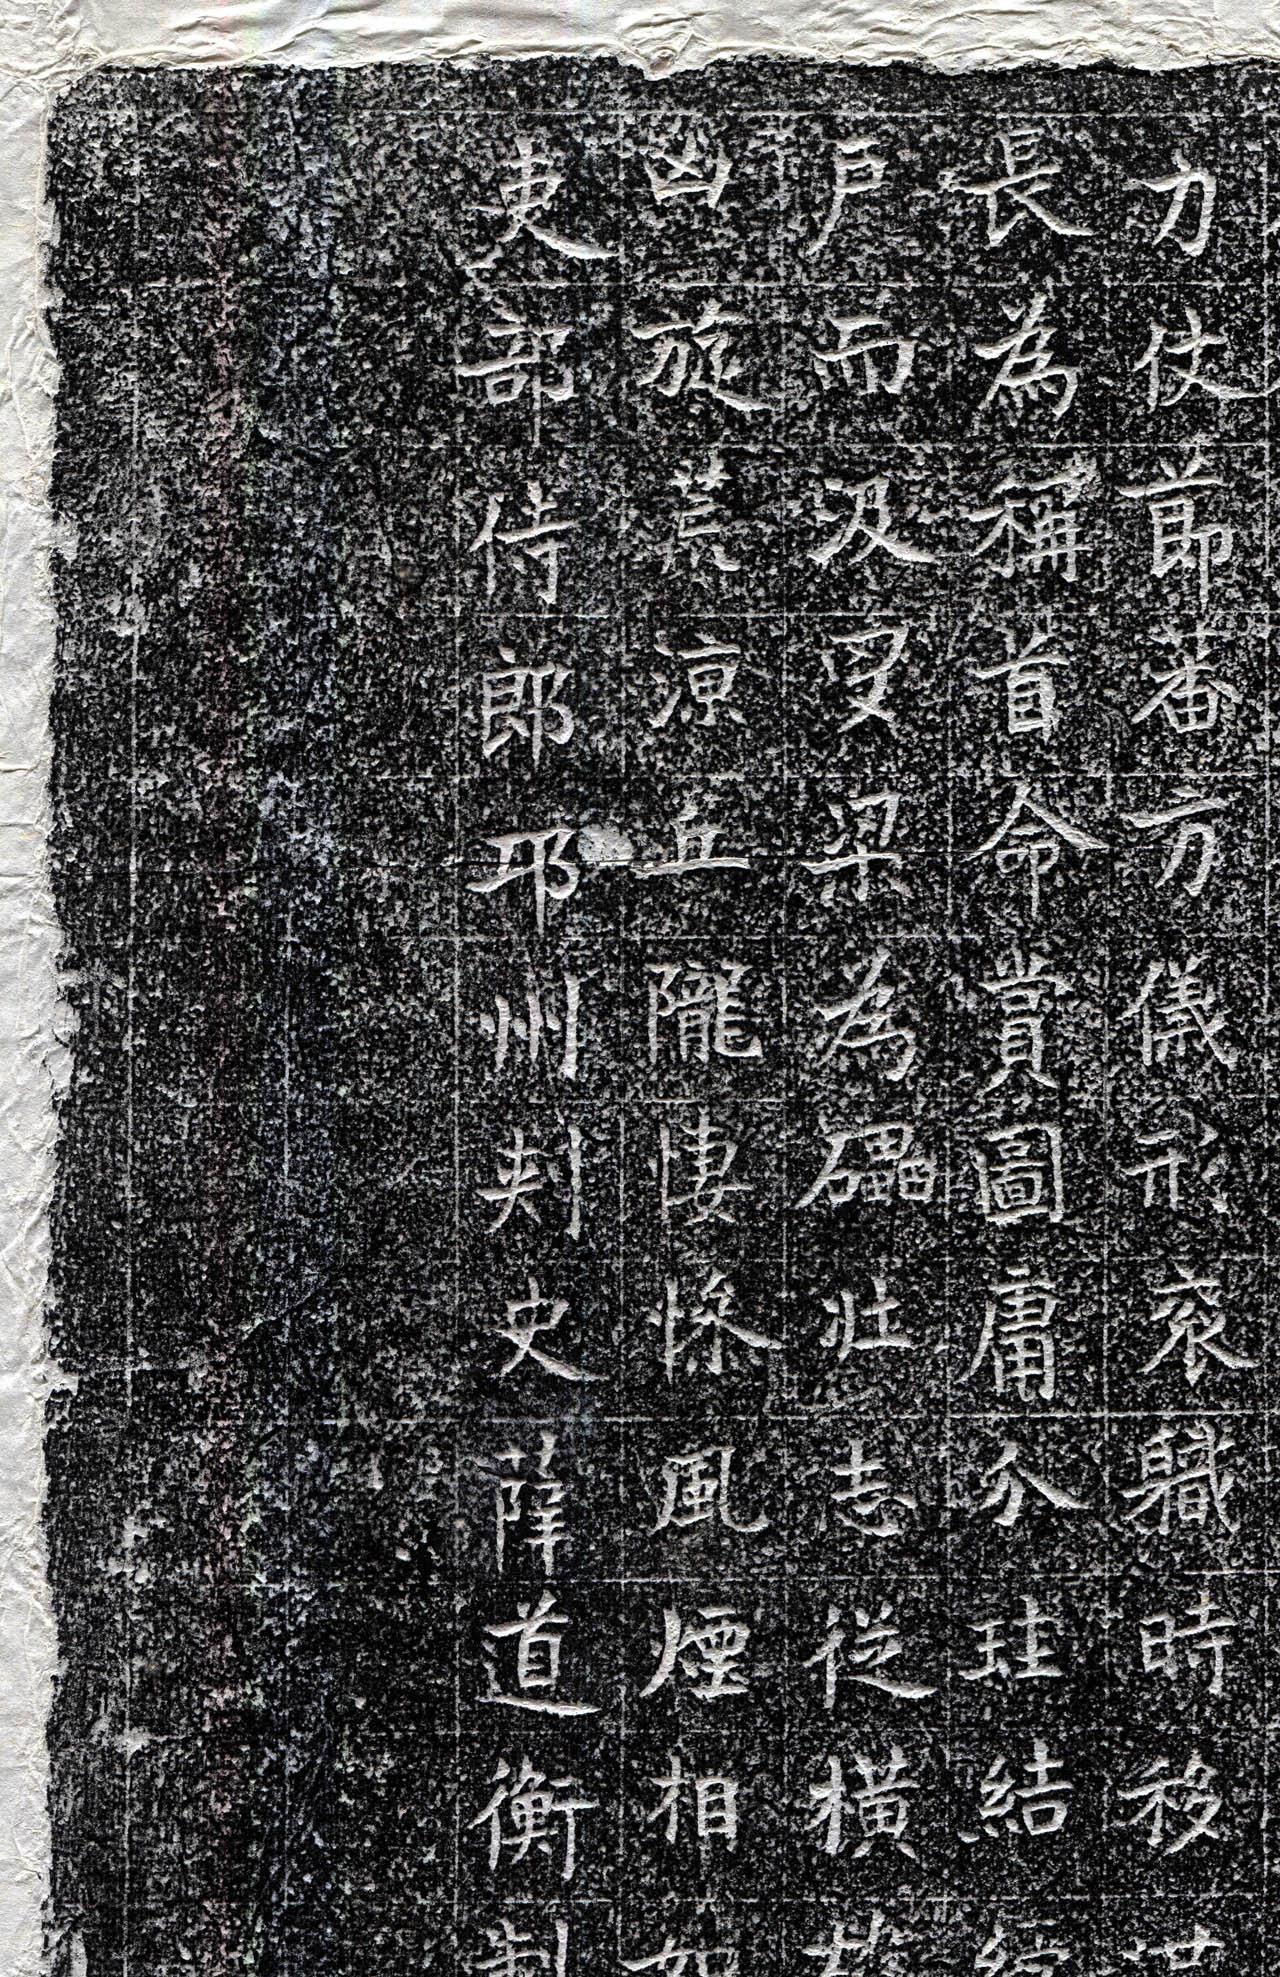 力仗節蕃方儀形袞職時移世
長為稱首命賞圖庸分珪結
戶而汲梁為礧壯志從橫
凶旋荒涼丘隴悽慘風煙相如
吏部侍郎邛州刾史薛道衡制